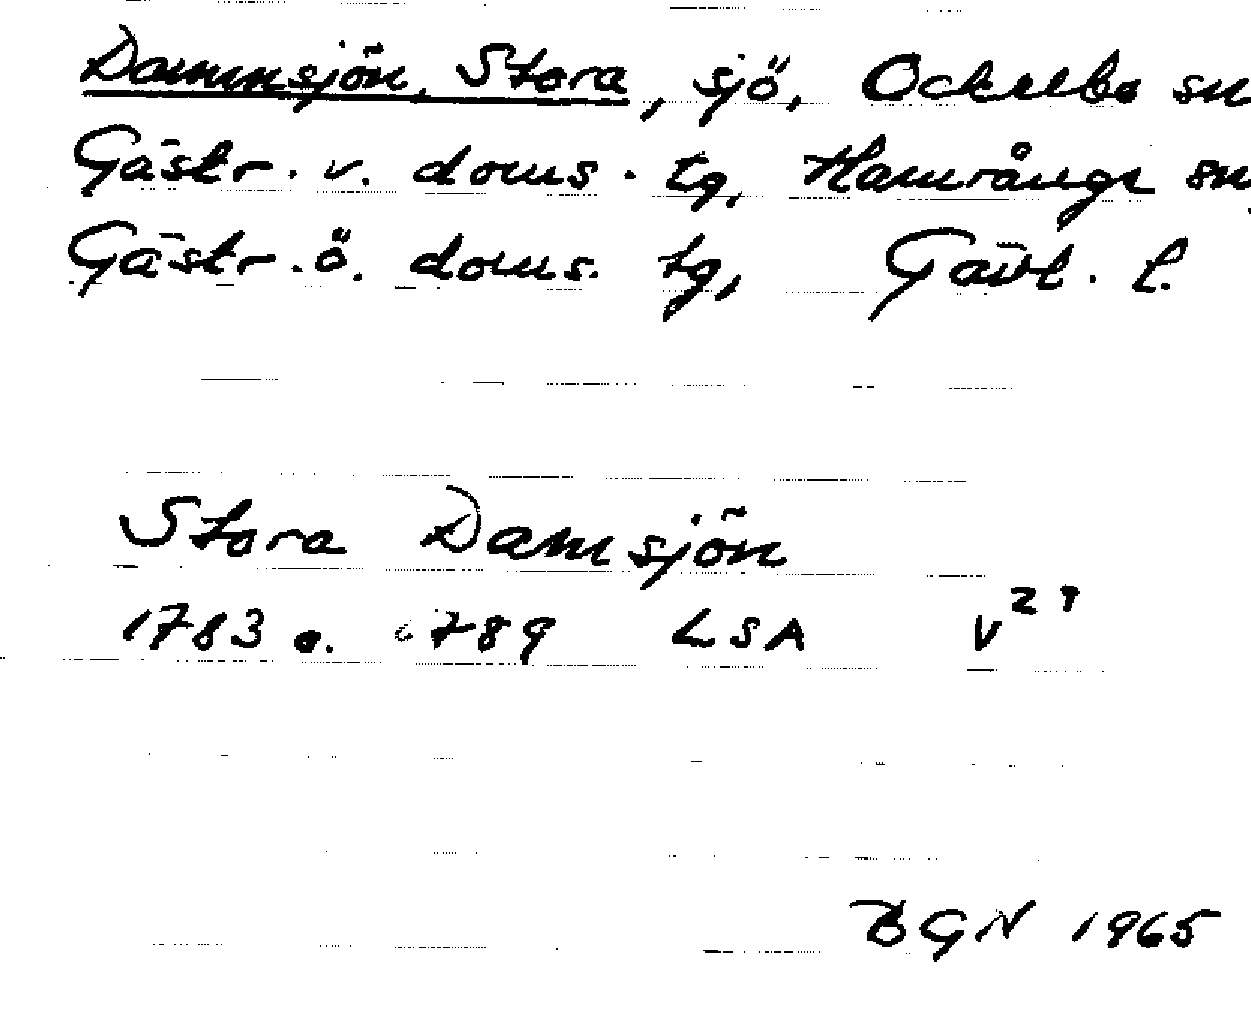 Dammsjön, Stora, sjö, Ockelbo sn
Gästr. v. doms. tg, Hamrånge sn,
Gästr. ö. doms. tg, Gävl. l.
Stora Damsjön
1783 o. 1789 LSA V 29
BGN 1965